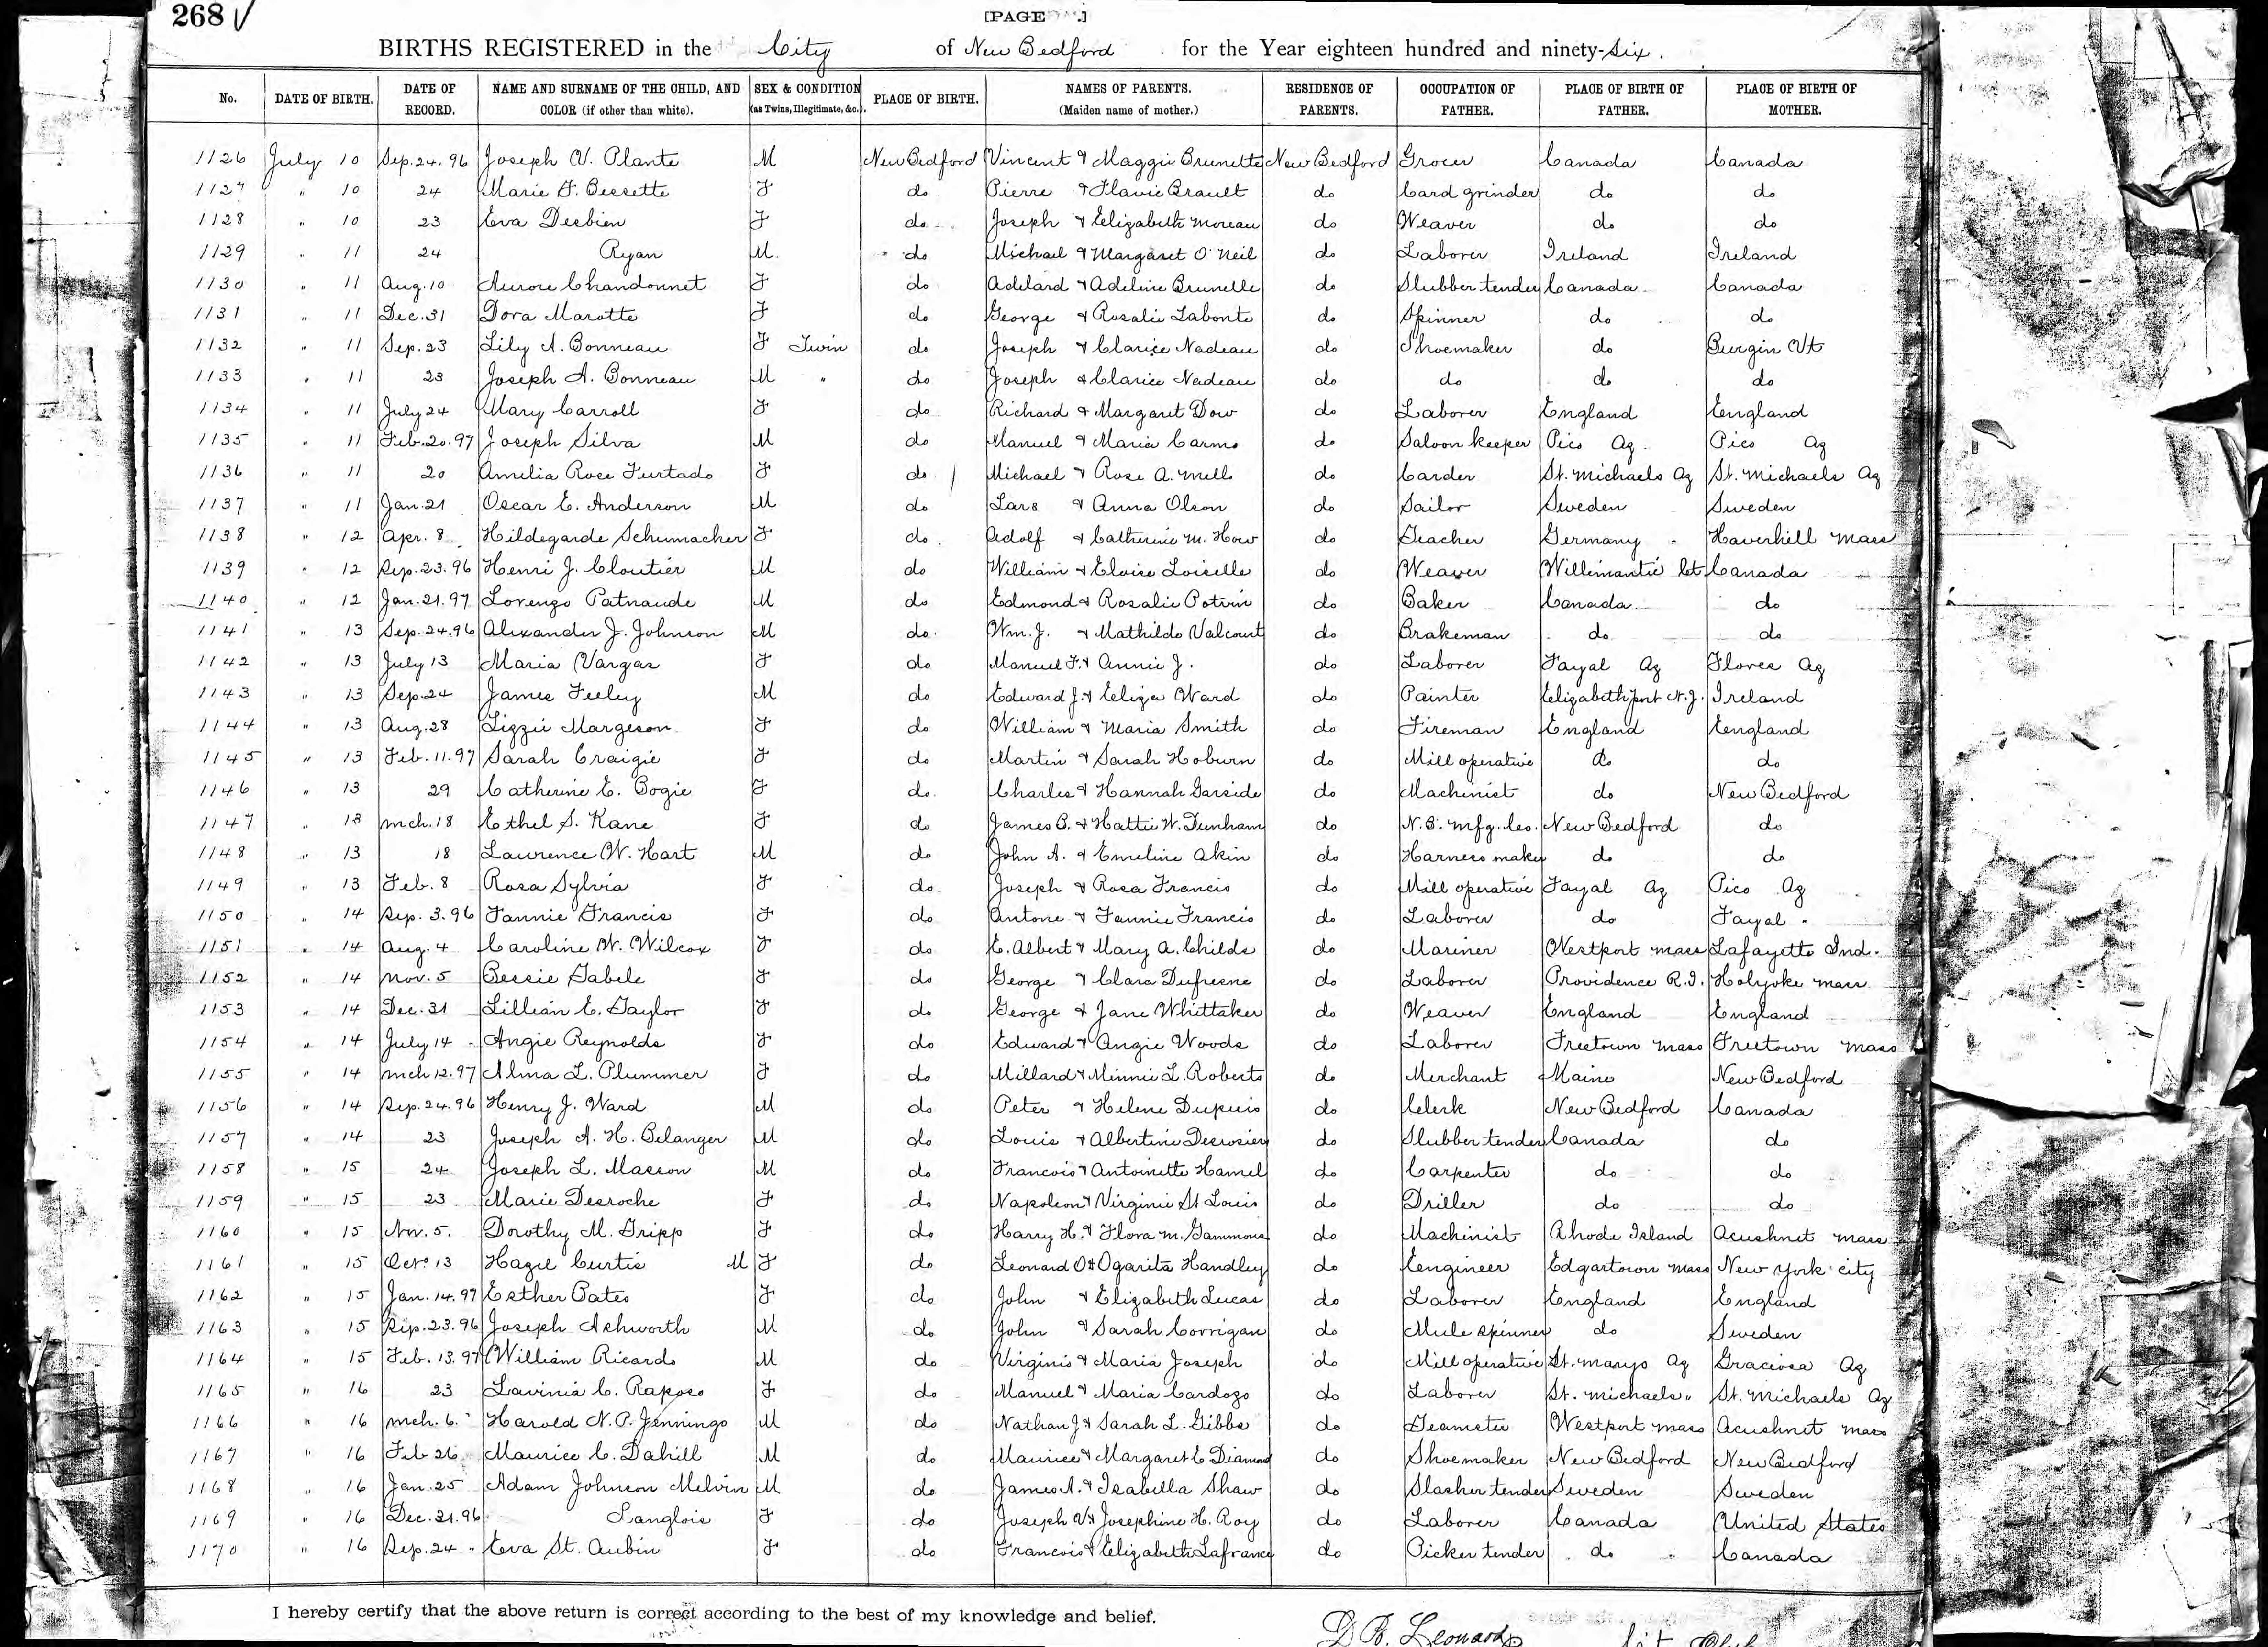 268 √
[PAGE .]
BIRTHS REGISTERED in the City of New Bedford for the Year eighteen hundred and ninety-six.
No. DATE OF BIRTH. DATE OF RECORD. NAME AND SURNAME OF THE CHILD, AND COLOR (if other than white). SEX & CONDITION (as Twins, Illegitimate, &c.). PLACE OF BIRTH. NAMES OF PARENTS. (Maiden name of mother.) RESIDENCE OF PARENTS. OCCUPATION OF FATHER. PLACE OF BIRTH OF FATHER. PLACE OF BIRTH OF MOTHER.
1126 July 10 Sep. 24. 96 Joseph V. Plante M New Bedford Vincent & Maggie Brunette New Bedford Grocer Canada Canada
1127 " 10 24 Marie F. Bessette F do Pierre & Flavie Brault do Card grinder do do
1128 " 10 23 Eva Desbien F do Joseph & Elizabeth Moreau do Weaver do do
1129 " 11 24 Ryan M. do Michael & Margaret O'Neil do Laborer Ireland Ireland
1130 " 11 Aug. 10 Aurore Chandonnet F do Adelard & Adeline Brunelle do Slubber tender Canada Canada
1131 " 11 Dec. 31 Dora Marotte F do George & Rosalie Labonte do Spinner do do
1132 " 11 Sep. 23 Lily A. Bonneau F Twin do Joseph & Clarice Nadeau do Shoemaker do Burgin Vt
1133 " 11 23 Joseph A. Bonneau M " do Joseph & Clarice Nadeau do do do do
1134 " 11 July 24 Mary Carroll F do Richard & Margaret Dow do Laborer England England
1135 " 11 Feb. 20. 97 Joseph Silva M do Manuel & Maria Carmo do Saloon keeper Pico Az Pico Az
1136 " 11 20 Amelia Rose Furtado F do Michael & Rose A. Mello do Carder St. Michaels Az St. Michaels Az
1137 " 11 Jan. 21 Oscar E. Anderson M do Lars & Anna Olson do Sailor Sweden Sweden
1138 " 12 Apr. 8 Hildegarde Schumacher F do Adolf & Catherine M. How do Teacher Germany Haverhill Mass
1139 " 12 Sep. 23. 96 Henri J. Cloutier M do William & Eloise Loiselle do Weaver Willimantic Ct Canada
1140 " 12 Jan. 21. 97 Lorenzo Patnaude M do Edmond & Rosalie Potvin do Baker Canada do
1141 " 13 Sep. 24. 96 Alexander J. Johnson M do Wm. J. & Mathilde Valcourt do Brakeman do do
1142 " 13 July 13 Maria Vargas F do Manuel F. & Annie J. do Laborer Fayal Az Flores Az
1143 " 13 Sep. 24 James Feeley M do Edward J. & Eliza Ward do Painter Elizabethport N.J. Ireland
1144 " 13 Aug. 28 Lizzie Margeson F do William & Maria Smith do Fireman England England
1145 " 13 Feb. 11. 97 Sarah Craigie F do Martin & Sarah Hoburn do Mill operative do do
1146 " 13 29 Catherine E. Bogie F do Charles & Hannah Garside do Machinist do New Bedford
1147 " 13 Mch. 18 Ethel S. Kane F do James B. & Hattie W. Dunham do N.B. Mfg. Co. New Bedford do
1148 " 13 18 Lawrence W. Hart M do John A. & Emeline Akin do Harness maker do do
1149 " 13 Feb. 8 Rosa Sylvia F do Joseph & Rosa Francis do Mill operative Fayal Az Pico Az
1150 " 14 Sep. 3. 96 Fannie Francis F do Antone & Fannie Francis do Laborer do Fayal "
1151 " 14 Aug. 4 Caroline W. Wilcox F do E. Albert & Mary A. Childs do Mariner Westport Mass Lafayette Ind.
1152 " 14 Nov. 5 Bessie Gabele F do George & Clara Dufresne do Laborer Providence R.I. Holyoke Mass
1153 " 14 Dec. 31 Lillian E. Taylor F do George & Jane Whittaker do Weaver England England
1154 " 14 July 14 Angie Reynolds F do Edward & Angie Woods do Laborer Freetown Mass Freetown Mass
1155 " 14 Mch 12. 97 Alma L. Plummer F do Millard & Minnie L. Roberts do Merchant Maine New Bedford
1156 " 14 Sep. 24. 96 Henry J. Ward M do Peter & Helene Dupuis do Clerk New Bedford Canada
1157 " 14 23 Joseph A. H. Belanger M do Louis & Albertine Desrosiers do Slubber tender Canada do
1158 " 15 24 Joseph L. Masson M do Francois & Antoinette Hamel do Carpenter do do
1159 " 15 23 Marie Desroche F do Napoleon & Virginie St Louis do Driller do do
1160 " 15 Nov. 5. Dorothy M. Tripp F do Harry H. & Flora M. Gammons do Machinist Rhode Island Acushnet Mass
1161 " 15 Oct. 13 Hazel Curtis M F do Leonard O & Ogarita Handley do Engineer Edgartown Mass New York City
1162 " 15 Jan. 14. 97 Esther Bates F do John & Elizabeth Lucas do Laborer England England
1163 " 15 Sep. 23. 96 Joseph Ashworth M do John & Sarah Corrigan do Mule spinner do Sweden
1164 " 15 Feb. 13. 97 William Ricardo M do Virginis & Maria Joseph do Mill operative St. Marys Az Graciosa Az
1165 " 16 23 Lavinia C. Raposo F do Manuel & Maria Cardozo do Laborer St. Michaels " St. Michaels Az
1166 " 16 Mch. 6. Harold N. P. Jennings M do Nathan J & Sarah L. Gibbs do Teamster Westport Mass Acushnet Mass
1167 " 16 Feb 26 Maurice C. Dahill M do Maurice & Margaret E Diamond do Shoemaker New Bedford New Bedford
1168 " 16 Jan. 25 Adam Johnson Melvin M do James A. & Isabella Shaw do Slasher tender Sweden Sweden
1169 " 16 Dec. 31. 96 Langlois F do Joseph V. & Josephine H. Roy do Laborer Canada United States
1170 " 16 Sep. 24 " Eva St. Aubin F do Francois & Elizabeth Lafrance do Picker tender do Canada
I hereby certify that the above return is correct according to the best of my knowledge and belief.
D B. Leonard